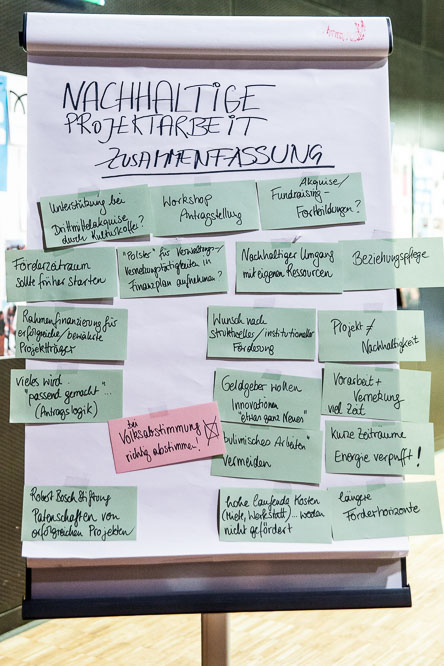 NACHHALTIGE
PROJEKTARBEIT
ZUSAMMENFASSUNG
Unterstützung bei
Drittmittelakquise
durch Kulturkoffer?
Workshop
Antragstellung
Akquise/
Fundraising-
Fortbildungen?
Förderzeitraum
sollte früher starten
"Polster" für Verwaltungs-/
Vernetzungstätigkeiten in
Finanzplan aufnehmen?
Nachhaltiger Umgang
mit eigenen Ressourcen
Beziehungspflege
Rahmenfinanzierung für
erfolgreiche/bewährte
Projektträger
Wunsch nach
struktureller/institutioneller
Förderung
Projekt ≠
Nachhaltigkeit
vieles wird..
"passend gemacht"...
(Antragslogik)
Geldgeber wollen
Innovationen
"etwas ganz Neues"
Vorarbeit +
Vernetzung
viel Zeit
bei
Volksabstimmung
richtig abstimmen!
bulimisches Arbeiten"
vermeiden
kurze Zeiträume
Energie verpufft!
Robert Bosch Stiftung
Patenschaften von
erfolgreichen Projekten
hohe laufende Kosten
(Miete, Werkstatt)... werden
nicht gefördert
längere
Förderhorizonte